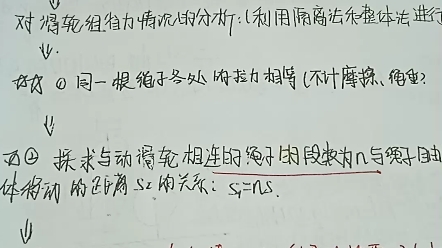 对滑轮组省力情况的分析:(利用隔离法和整体法进行
① 同一根绳子各处的拉力相等(不计摩擦、绳重)
② 探求与动滑轮相连的绳子的段数为n与绳子自由
体移动的距离S₂的关系: S₁=nS.